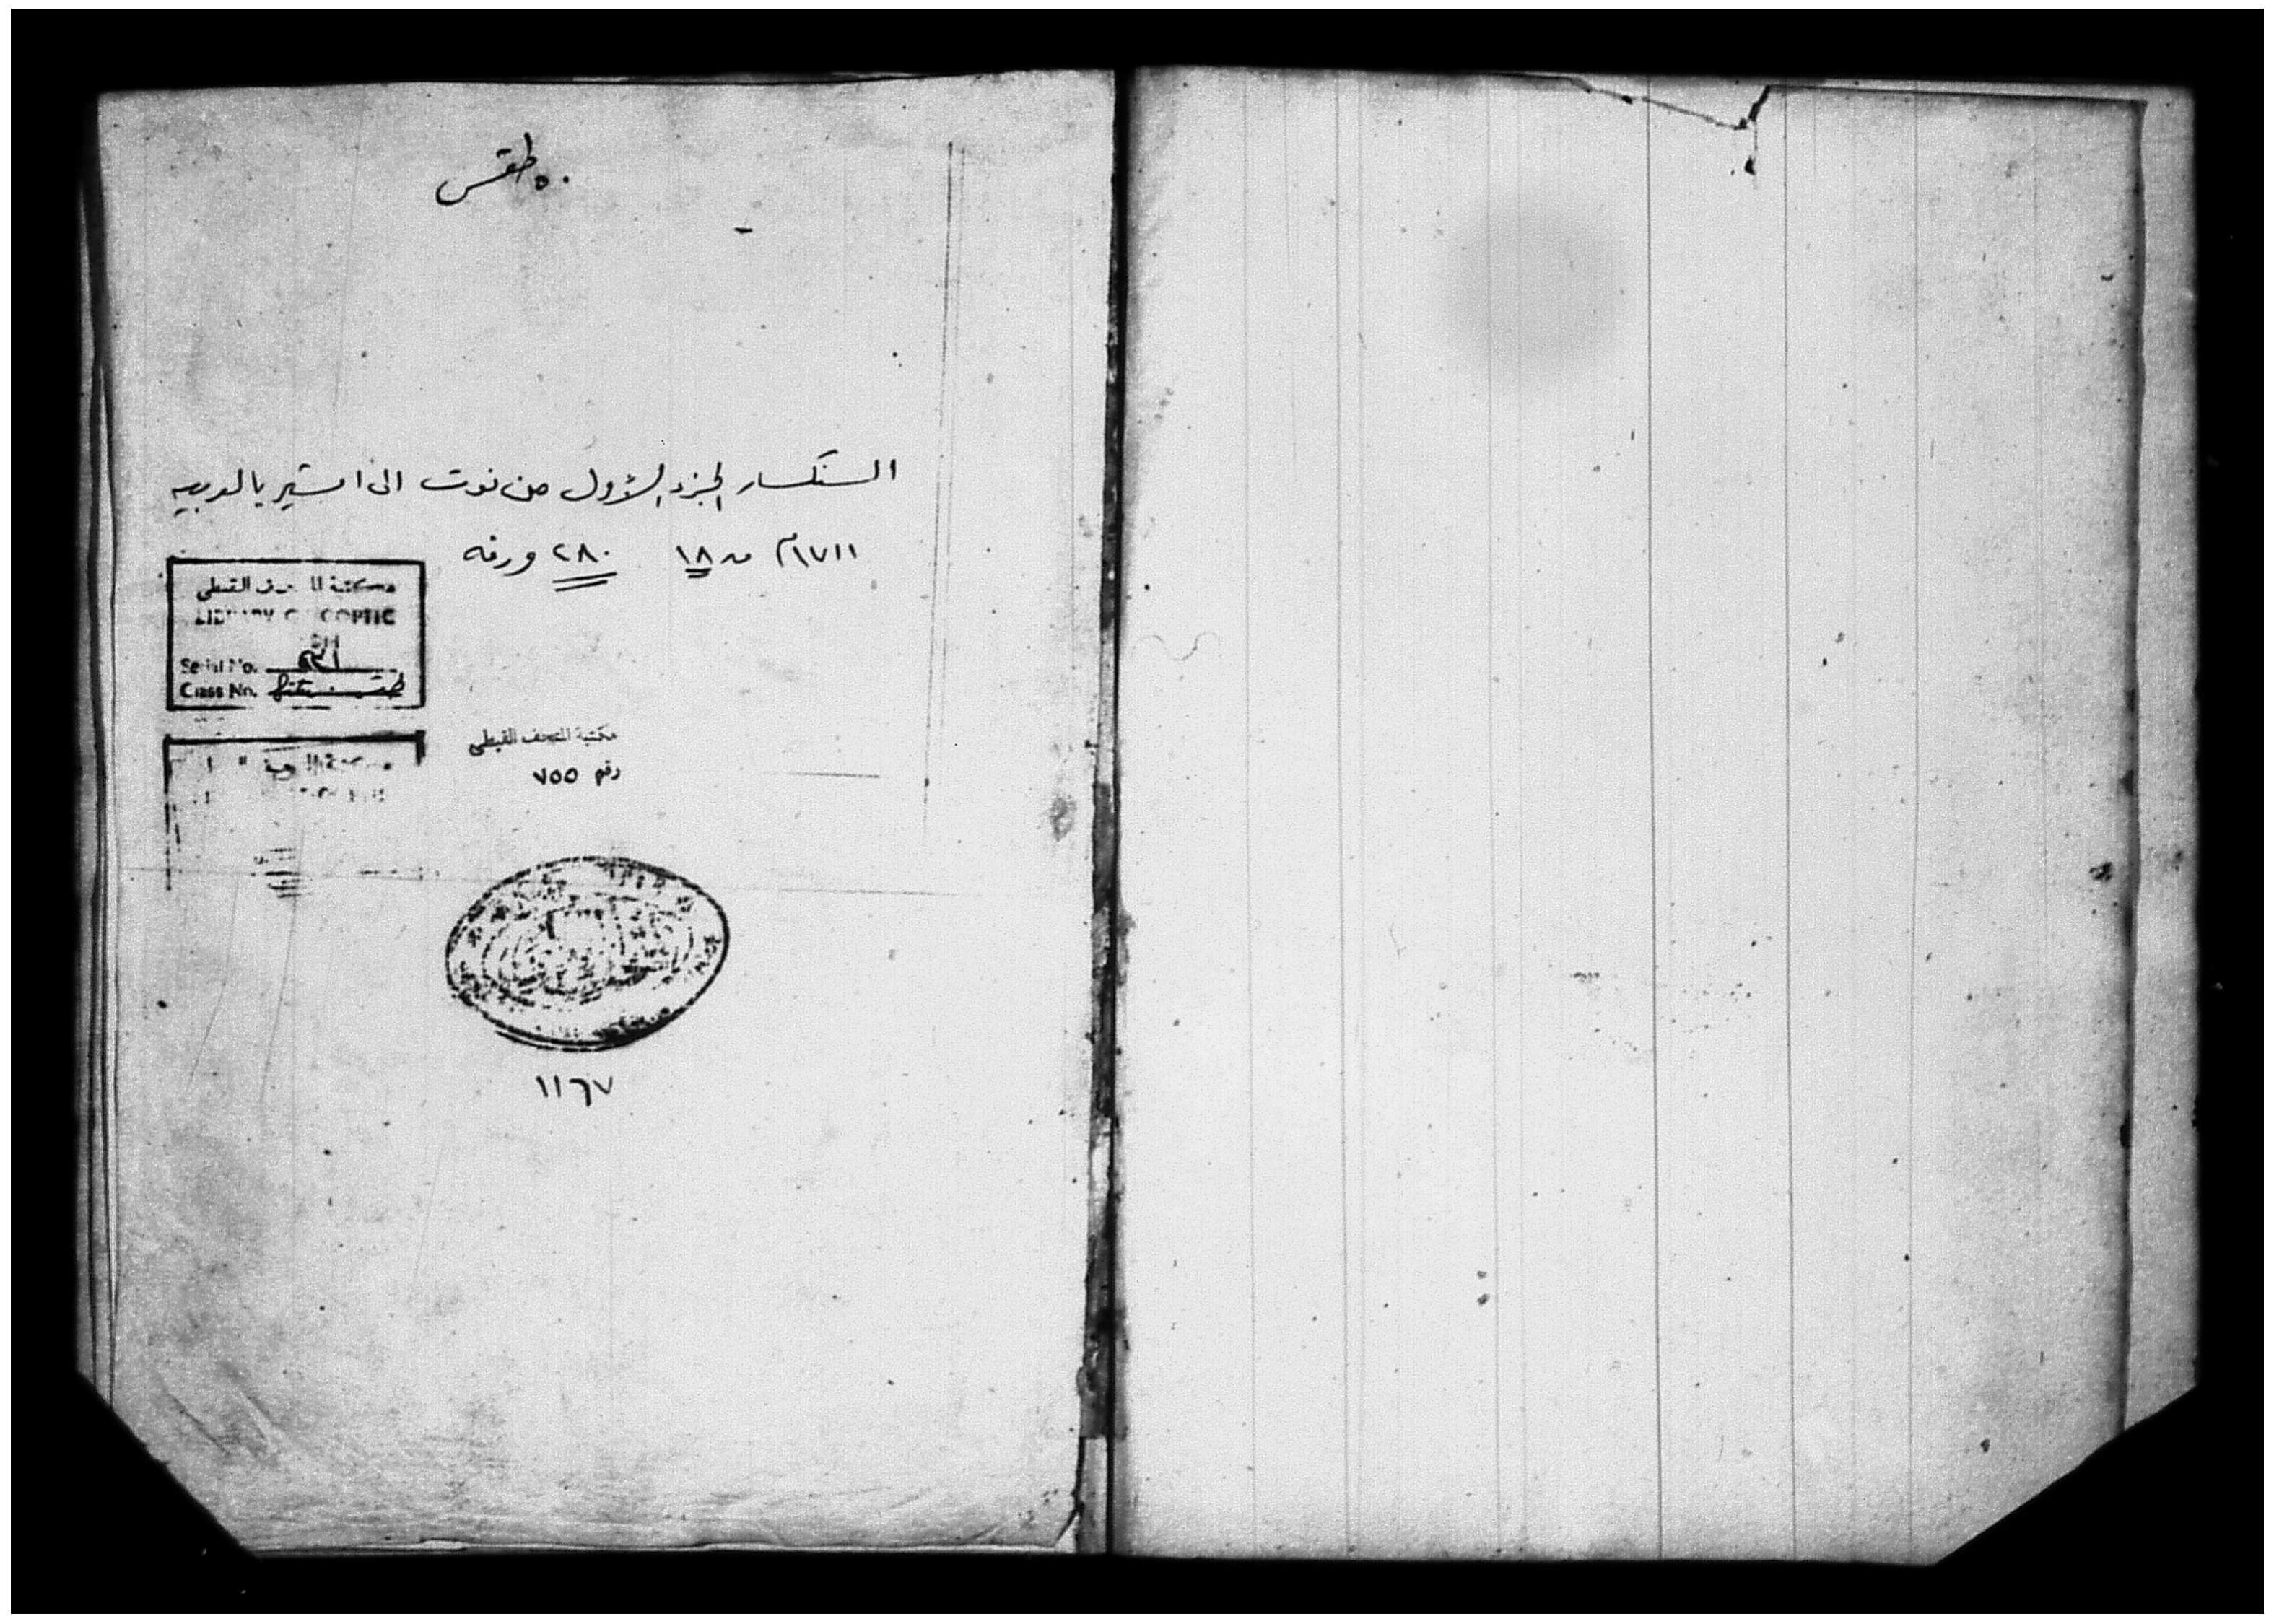 ٥٠ طقس
السنكسار الجزء الأول من توت الى امشير بالعربيه
١٧١١م ق ١٨ ٢٨٠ ورقه
مكتبة المتحف القبطى
LIBRARY OF COPTIC
Serial No.
Class No. طقس
مكتبة المتحف القبطى
رقم ٧٥٥
١١٦٧